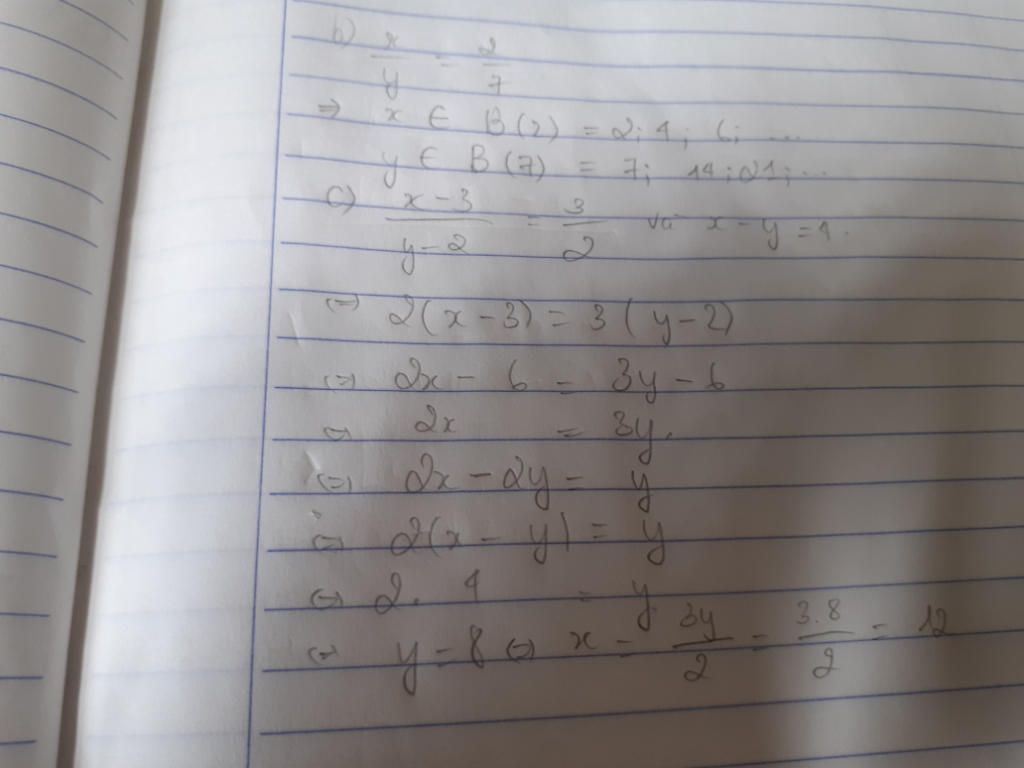 b) x/y = 2/7
=> x ∈ B(2) = 2; 4; 6; ...
y ∈ B(7) = 7; 14; 21; ...
c) x-3/y-2 = 3/2 và x - y = 4.
<=> 2(x-3) = 3(y-2)
<=> 2x - 6 = 3y - 6
<=> 2x = 3y.
<=> 2x - 2y = y
<=> 2(x - y) = y
<=> 2. 4 = y
<=> y = 8 <=> x = 3y/2 = 3.8/2 = 12